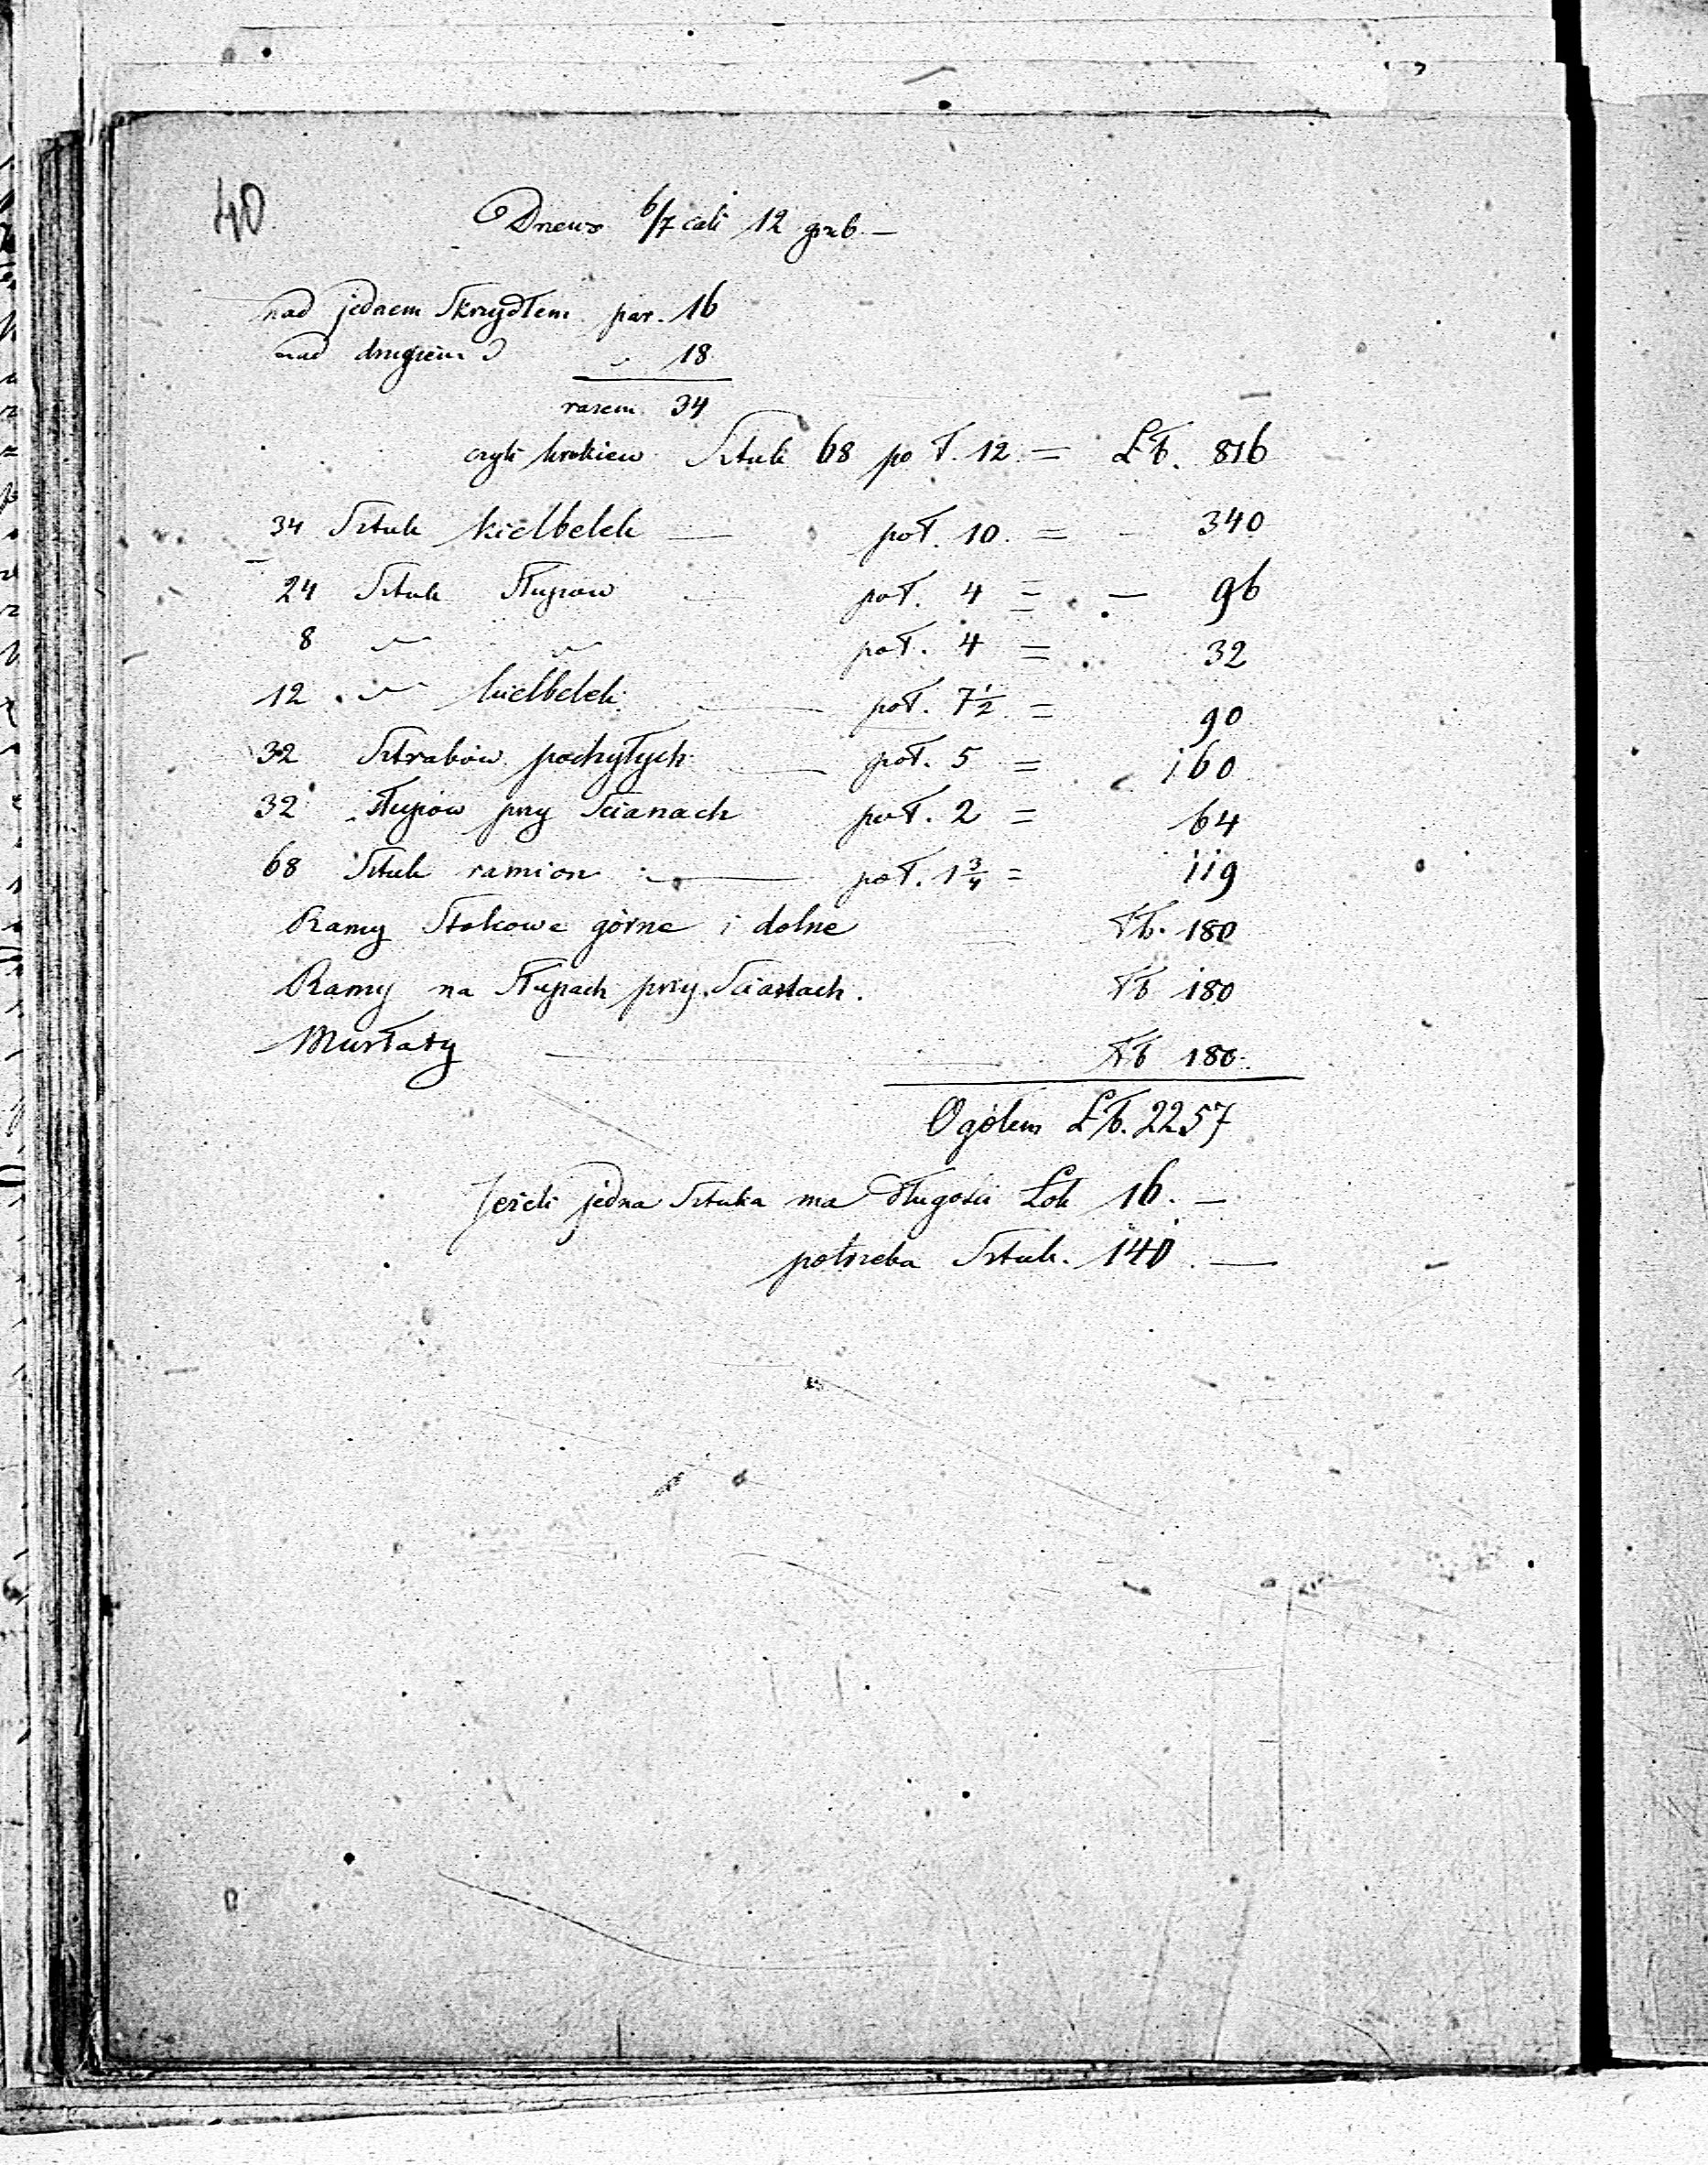 40.
Drzewo 6/7 cali 12 grub. —
nad jednem skrzydłem par. 16
nad drugiem " 18
razem 34
czyli krokiew Sztuk 68 po Ł. 12 = Łb. 816
34 Sztuk kielbelek — po Ł. 10. = - 340
24 Sztuk słupów — po Ł. 4 = — 96
8 " " po Ł. 4 = 32
12 " kielbelek — po Ł. 7½ = 90
32 Sztrabów pochyłych — po Ł. 5 = 160
32 słupów przy ścianach po Ł. 2 = 64
68 Sztuk ramion — po Ł. 1¾ = 119
Ramy Stolcowe górne i dolne Łb. 180
Ramy na słupach przy ścianach. Łb 180
Murłaty — Łb 180.
Ogółem Łb. 2257
Jeżeli jedna Sztuka ma długości Łok 16. —
potrzeba Sztuk. 140. —